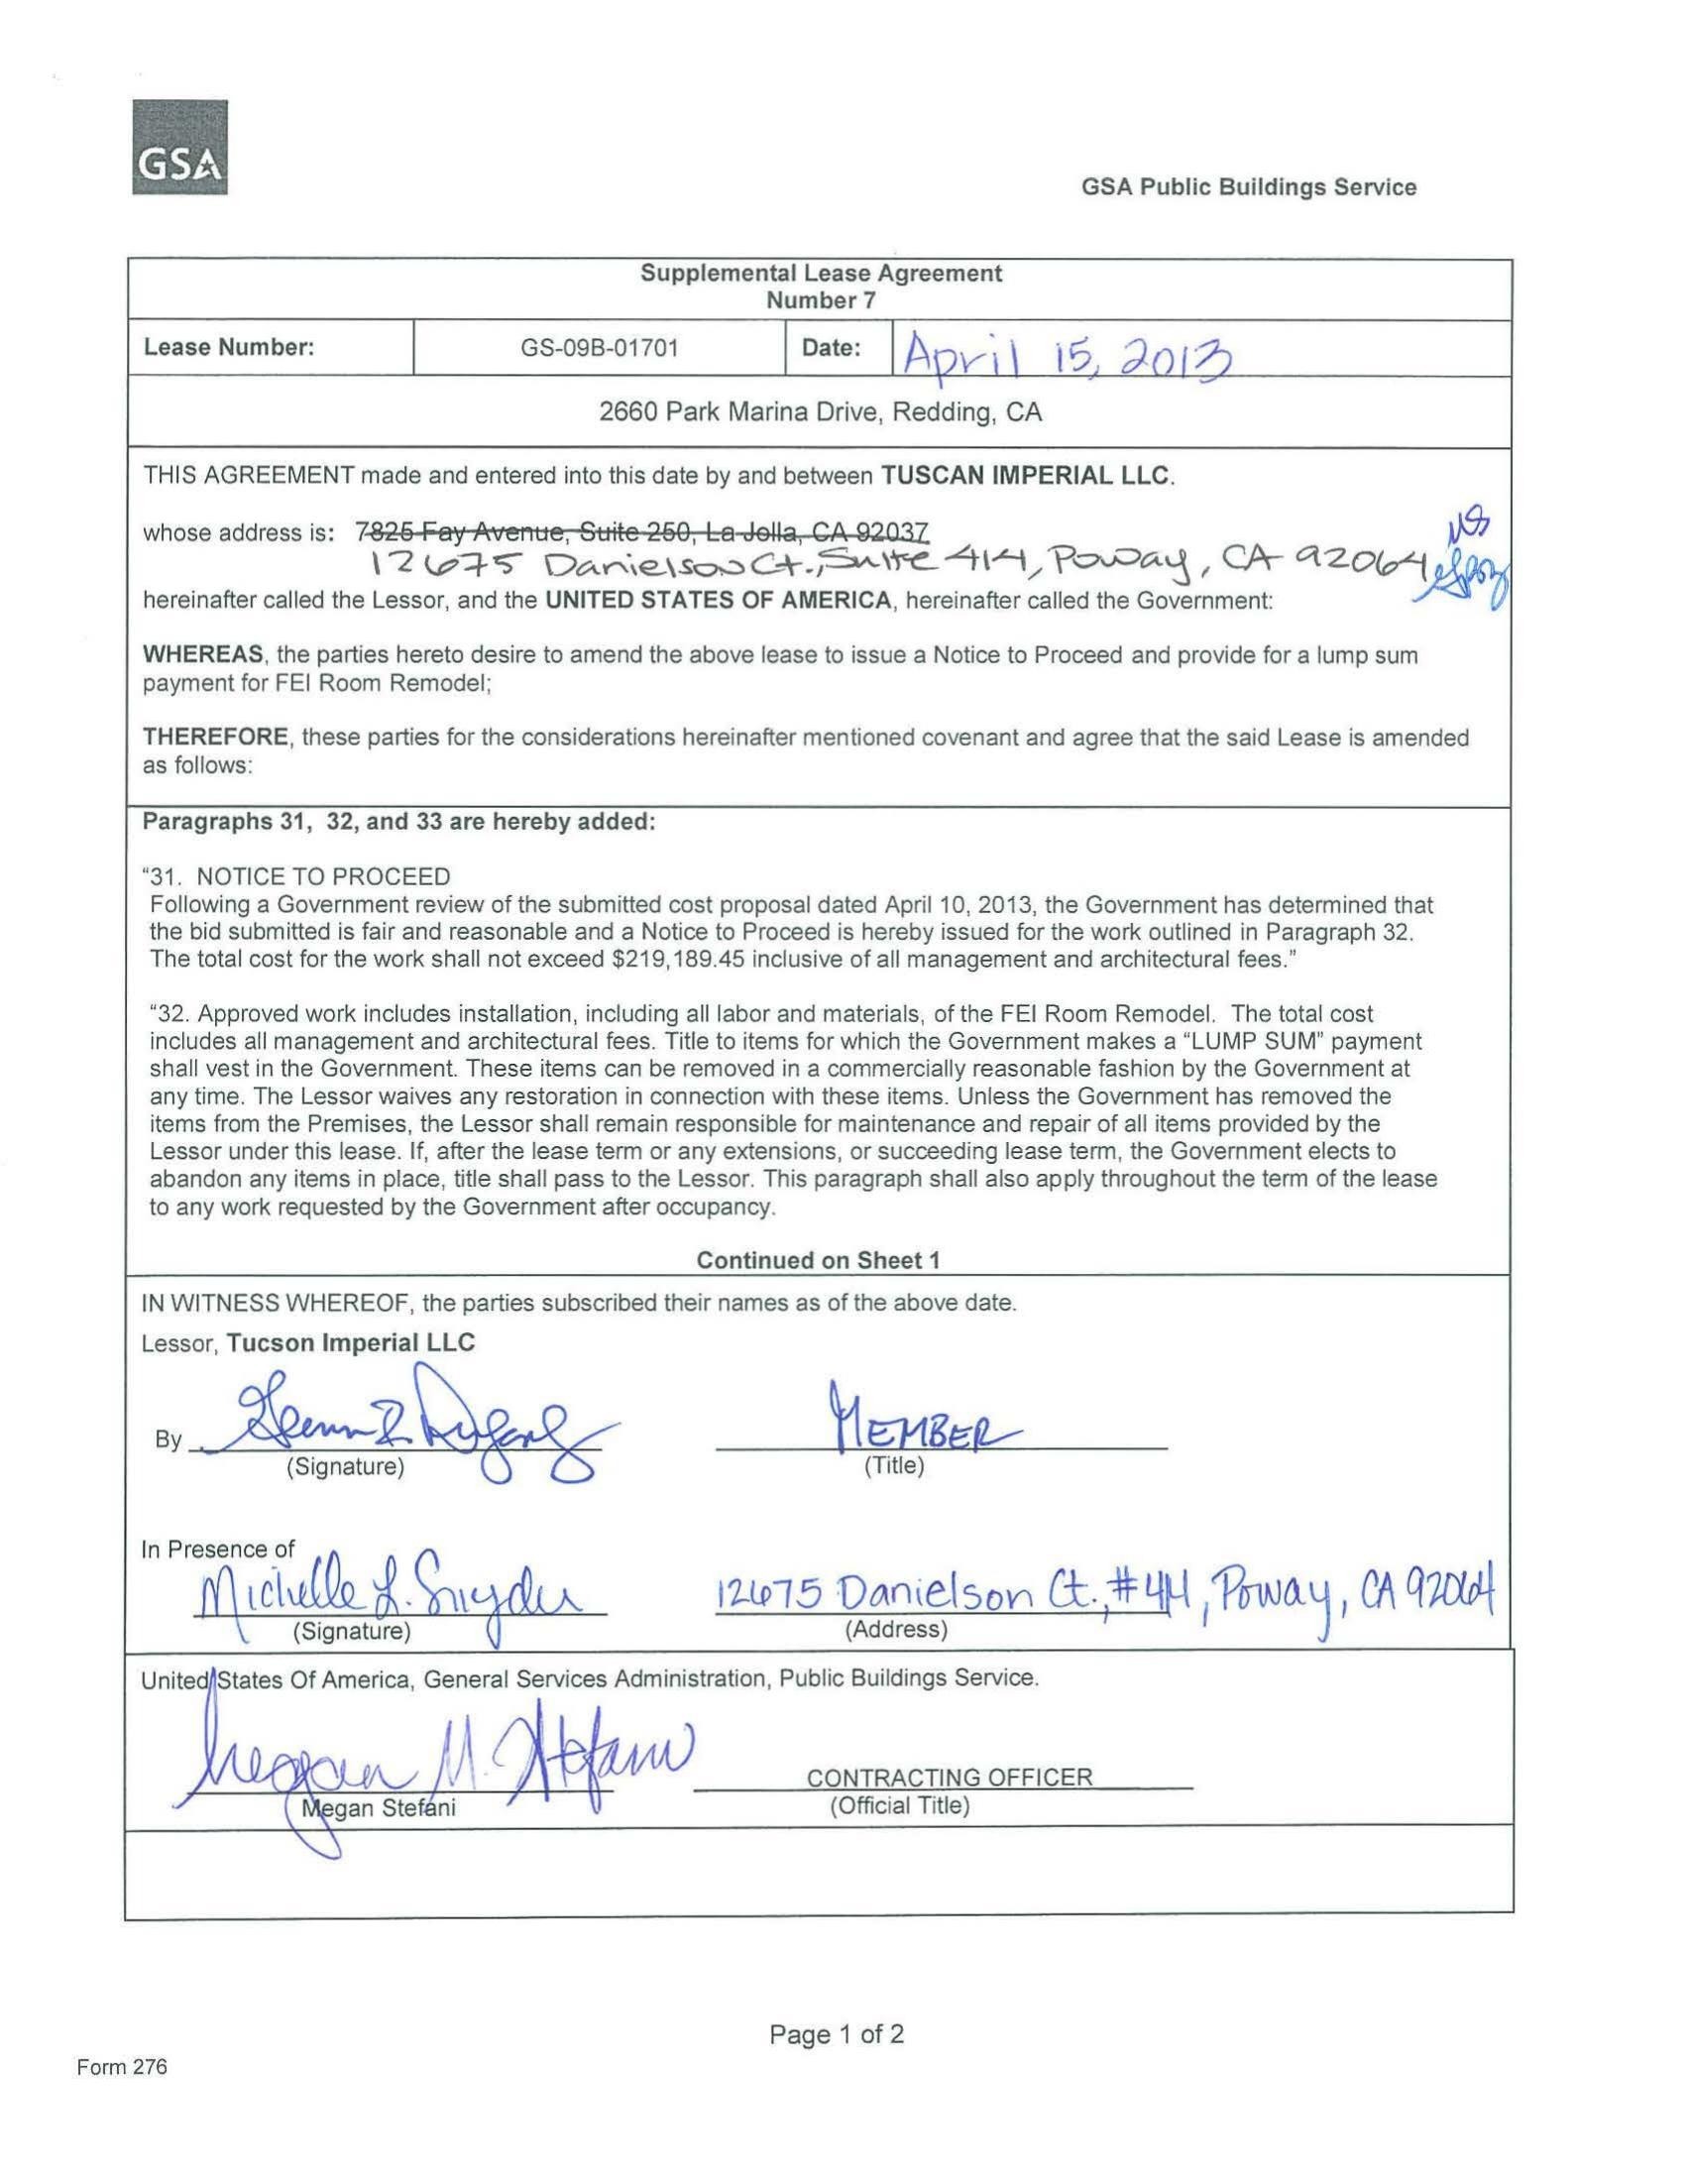 GSA
GSA Public Buildings Service
Supplemental Lease Agreement
Number 7
Lease Number:
GS-09B-01701
Date:
April 15, 2013
2660 Park Marina Drive, Redding, CA
THIS AGREEMENT made and entered into this date by and between TUSCAN IMPERIAL LLC.
whose address is: 7825 Fay Avenue, Suite 250, La Jolla, CA 92037
12675 Danielson Ct., Suite 414, Poway, CA 92064
hereinafter called the Lessor, and the UNITED STATES OF AMERICA, hereinafter called the Government:
WHEREAS, the parties hereto desire to amend the above lease to issue a Notice to Proceed and provide for a lump sum
payment for FEI Room Remodel;
THEREFORE, these parties for the considerations hereinafter mentioned covenant and agree that the said Lease is amended
as follows:
Paragraphs 31, 32, and 33 are hereby added:
"31. NOTICE TO PROCEED
Following a Government review of the submitted cost proposal dated April 10, 2013, the Government has determined that
the bid submitted is fair and reasonable and a Notice to Proceed is hereby issued for the work outlined in Paragraph 32.
The total cost for the work shall not exceed $219,189.45 inclusive of all management and architectural fees."
"32. Approved work includes installation, including all labor and materials, of the FEI Room Remodel. The total cost
includes all management and architectural fees. Title to items for which the Government makes a "LUMP SUM" payment
shall vest in the Government. These items can be removed in a commercially reasonable fashion by the Government at
any time. The Lessor waives any restoration in connection with these items. Unless the Government has removed the
items from the Premises, the Lessor shall remain responsible for maintenance and repair of all items provided by the
Lessor under this lease. If, after the lease term or any extensions, or succeeding lease term, the Government elects to
abandon any items in place, title shall pass to the Lessor. This paragraph shall also apply throughout the term of the lease
to any work requested by the Government after occupancy.
Continued on Sheet 1
IN WITNESS WHEREOF, the parties subscribed their names as of the above date.
Lessor, Tucson Imperial LLC
By
MEMBER
(Signature)
(Title)
In Presence of
Michelle L. Snyder
12675 Danielson Ct., #414, Poway, CA 92064
(Signature)
(Address)
United States Of America, General Services Administration, Public Buildings Service.
Megan M. Stefani
CONTRACTING OFFICER
Megan Stefani
(Official Title)
Page 1 of 2
Form 276